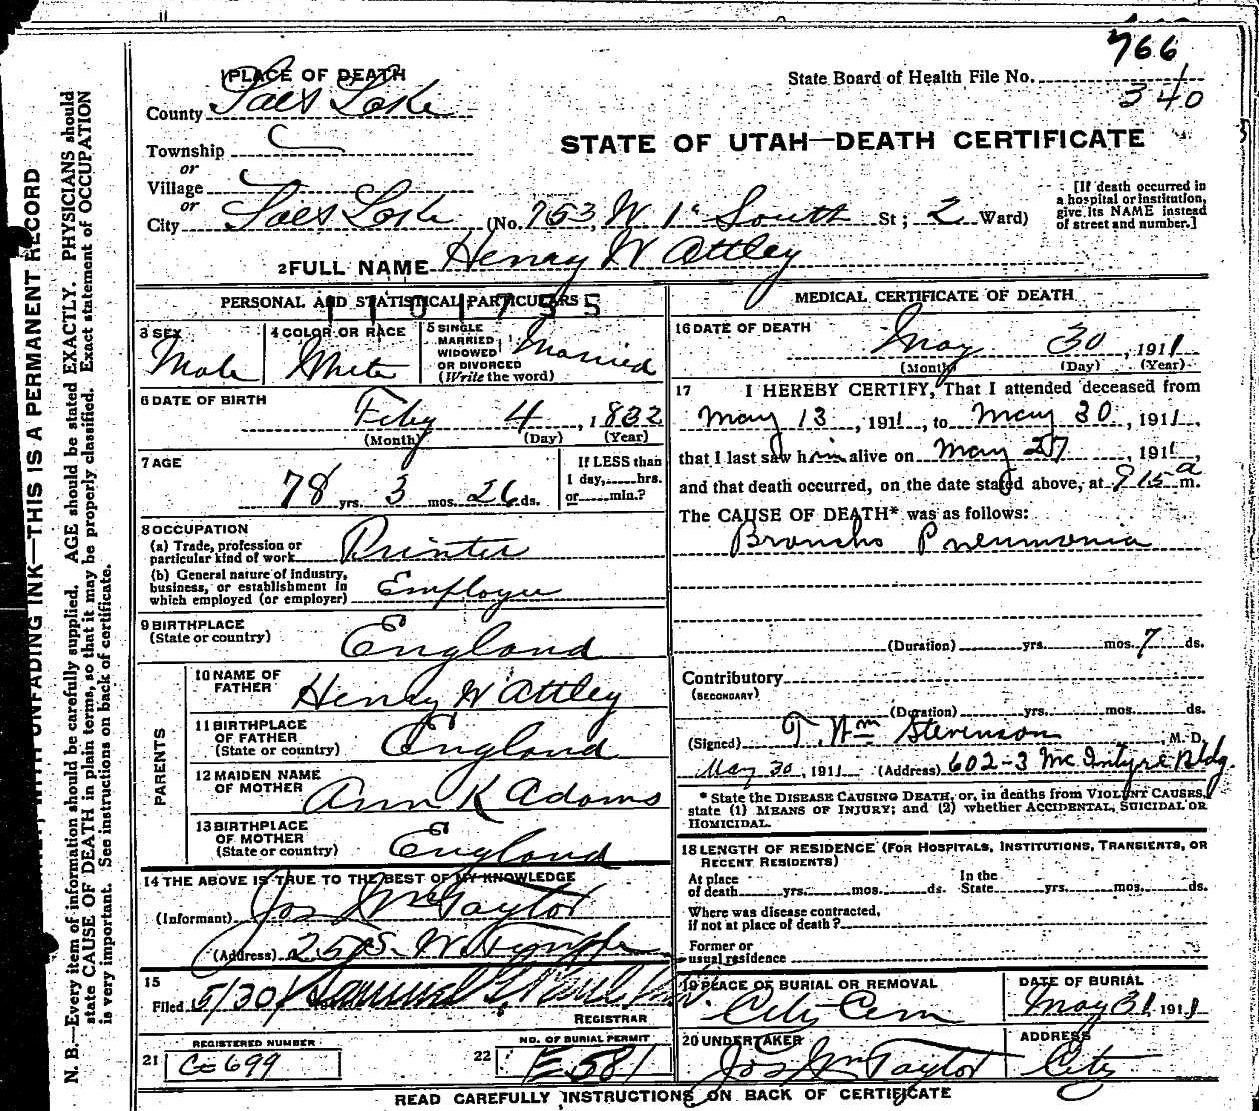 766
State Board of Health File No.
340
1 PLACE OF DEATH
County Salt Lake
STATE OF UTAH—DEATH CERTIFICATE
Township
or
Village
or
City Salt Lake (No. 753, W 1st South St; 2 Ward)
[If death occurred in
a hospital or institution,
give its NAME instead
of street and number.]
2 FULL NAME Henry W Attley
PERSONAL AND STATISTICAL PARTICULARS
3 SEX
Male
4 COLOR OR RACE
White
5 SINGLE
MARRIED
WIDOWED
OR DIVORCED
(Write the word)
Married
6 DATE OF BIRTH
Feby 4, 1832
(Month) (Day) (Year)
7 AGE
78 yrs. 3 mos. 26 ds.
If LESS than
1 day, hrs.
or min.?
8 OCCUPATION
(a) Trade, profession or
particular kind of work Printer
(b) General nature of industry,
business, or establishment in
which employed (or employer) Employee
9 BIRTHPLACE
(State or country) England
PARENTS
10 NAME OF
FATHER Henry W Attley
11 BIRTHPLACE
OF FATHER
(State or country) England
12 MAIDEN NAME
OF MOTHER Ann K Adams
13 BIRTHPLACE
OF MOTHER
(State or country) England
14 THE ABOVE IS TRUE TO THE BEST OF MY KNOWLEDGE
(Informant) Jos Wm Taylor
(Address) 25 S. W. Temple
15
Filed 5/30/
REGISTRAR
REGISTERED NUMBER
21 C-699
NO. OF BURIAL PERMIT
22 E581
MEDICAL CERTIFICATE OF DEATH
16 DATE OF DEATH
May 30, 1911
(Month) (Day) (Year)
17 I HEREBY CERTIFY, That I attended deceased from
May 13, 1911, to May 30, 1911,
that I last saw him alive on May 27, 1911,
and that death occurred, on the date stated above, at 9 15 a m.
The CAUSE OF DEATH* was as follows:
Broncho Pneumonia
(Duration) yrs. mos. 7 ds.
Contributory
(SECONDARY)
(Duration) yrs. mos. ds.
(Signed) T. Wm Stevenson, M. D.
May 30, 1911 (Address) 602-3 Mc Intyre Bldg.
* State the DISEASE CAUSING DEATH, or, in deaths from VIOLENT CAUSES,
state (1) MEANS OF INJURY; and (2) whether ACCIDENTAL, SUICIDAL OR
HOMICIDAL.
18 LENGTH OF RESIDENCE (FOR HOSPITALS, INSTITUTIONS, TRANSIENTS, OR
RECENT RESIDENTS)
At place
of death yrs. mos. ds.
In the
State yrs. mos. ds.
Where was disease contracted,
if not at place of death?
Former or
usual residence
19 PLACE OF BURIAL OR REMOVAL
City Cem
DATE OF BURIAL
May 31, 1911
20 UNDERTAKER
Jos Wm Taylor
ADDRESS
City
READ CAREFULLY INSTRUCTIONS ON BACK OF CERTIFICATE
UNFADING INK—THIS IS A PERMANENT RECORD
N. B.—Every item of information should be carefully supplied. AGE should be stated EXACTLY. PHYSICIANS should
state CAUSE OF DEATH in plain terms, so that it may be properly classified. Exact statement of OCCUPATION
is very important. See instructions on back of certificate.